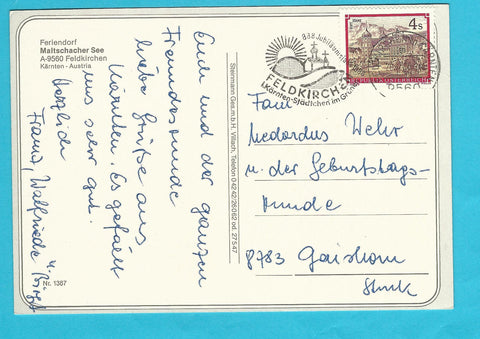 Feriendorf
Maltschacher See
A-9560 Feldkirchen
Kärnten - Austria
Euch und der ganzen
Freundesrunde
liebe Grüße aus
Kärnten. Es gefällt
uns sehr gut.
Herzlich
Franz, Walfriede u. Birgit
Nr. 1387
Steinmann Ges.m.b.H. Villach, Telefon 04242/26062 od. 27547
888 Jubiläums
FELDKIRCHEN
i.Kärnten-Städtchen im Grünen
9560
4 S
REPUBLIK ÖSTERREICH
Fam.
Medardus Wehr
u. der Geburtstags-
runde
8783 Gaishorn
Stmk